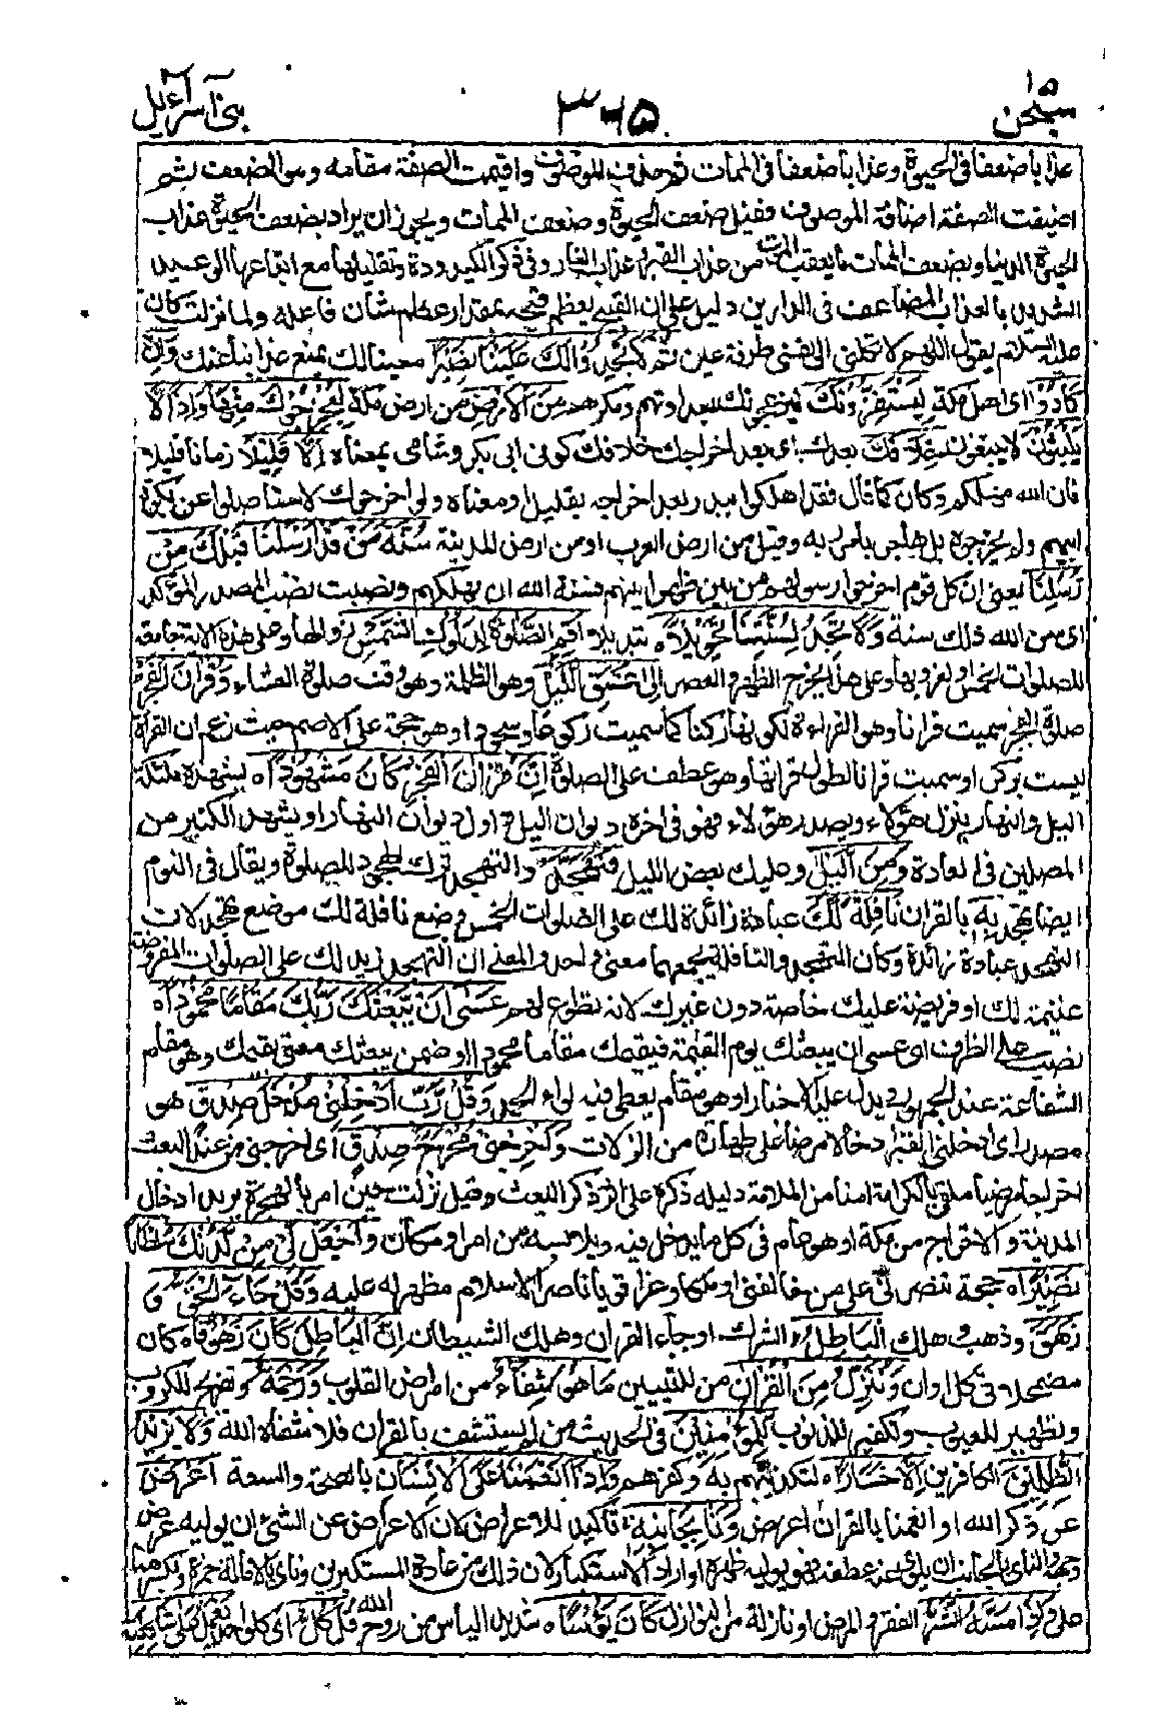 سبحن ١٥
٣٦٥
بنی اسرآءیل
عذابا ضعفا فی الحیوة وعذابا ضعفا فی الممات ثم حذف الموصوف واقیمت الصفة مقامه وهو الضعف ثم
اضیفت الصفة اضافة الموصوف فقیل ضعف الحیوة وضعف الممات ویجوز ان یراد بضعف الحیوة عذاب
الحیوة الدنیا وبضعف الممات ما یعقب الموت من عذاب القبر وعذاب النار وفی ذکر الکیدودة وتقلیلها مع اتباعها الوعید
الشدید بالعذاب المضاعف فی الدارین دلیل علی ان القبیح یعظم قبحه بمقدار عظم شان فاعله ولما نزلت کان
علیه السلام یقول اللهم لا تکلنی الی نفسی طرفة عین ثُمَّ لَا تَجِدُ لَكَ عَلَيْنَا نَصِيْرًا معینا لك یمنع عذابنا عنك وَاِنْ
كَادُوْا ای اهل مکة لَيَسْتَفِزُّوْنَكَ لیزعجونك بعداوتهم ومکرهم مِنَ الْاَرْضِ من ارض مکة لِيُخْرِجُوْكَ مِنْهَا وَاِذًا لَّا
يَلْبَثُوْنَ لا یبقون خِلٰفَكَ بعدك ای بعد اخراجك خلافك کوفی غیر ابی بکر وشامی بمعناه اِلَّا قَلِيْلًا زمانا قلیلا
فان الله مهلکهم وکان کما قال فقد اهلکوا ببدر بعد اخراجه بقلیل او معناه ولو اخرجوك لاستؤصلوا عن بکرة
ابیهم ولم یخرجوه بل هاجر بامر ربه وقیل من ارض العرب او من ارض المدینة سُنَّةَ مَنْ قَدْ اَرْسَلْنَا قَبْلَكَ مِنْ
رُّسُلِنَا یعنی ان کل قوم اخرجوا رسولهم من بین ظهرانیهم فسنة الله ان یهلکهم ونصبت نصب المصدر المؤکد
ای سن الله ذلك سنة وَلَا تَجِدُ لِسُنَّتِنَا تَحْوِيْلًاه تبدیلا اَقِمِ الصَّلٰوةَ لِدُلُوْكِ الشَّمْسِ لزوالها وعلی هذه الایة جامعة
للصلوات الخمس او لغروبها وعلی هذا یخرج الظهر والعصر اِلٰى غَسَقِ الَّيْلِ وهو الظلمة وهو وقت صلوة العشاء وَقُرْاٰنَ الْفَجْرِ
صلوة الفجر سمیت قرانا وهو القراءة لکونها رکنا کما سمیت رکوعا وسجودا وهو حجة علی الاصم حیث زعم ان القراءة
لیست برکن او سمیت قرانا لطول قراءتها وهو عطف علی الصلوة اِنَّ قُرْاٰنَ الْفَجْرِ كَانَ مَشْهُوْدًاه یشهده ملئکة
اللیل والنهار ینزل هؤلاء ویصعد هؤلاء فهو فی اخر دیوان اللیل واول دیوان النهار او یشهده الکثیر من
المصلین فی العادة وَمِنَ الَّيْلِ وعلیك بعض اللیل فَتَهَجَّدْ والتهجد ترك الهجود للصلوة ویقال فی النوم
ایضا تهجد بِهٖ بالقران نَافِلَةً لَّكَ عبادة زائدة لك علی الصلوات الخمس وضع نافلة لك موضع تهجدا لان
التهجد عبادة زائدة وکان التهجد والنافلة یجمعهما معنی واحد والمعنی ان التهجد زید لك علی الصلوات المفروضة
غنیمة لك او فریضة علیك خاصة دون غیرك لانه تطوع لهم عَسٰٓى اَنْ يَّبْعَثَكَ رَبُّكَ مَقَامًا مَّحْمُوْدًاه
نصب علی الظرف ای عسی ان یبعثك یوم القیمة فیقیمك مقاما محمودا او ضمن یبعثك معنی یقیمك وهو مقام
الشفاعة عند الجمهور ویدل علیه الاخبار او هو مقام یعطی فیه لواء الحمد وَقُلْ رَّبِّ اَدْخِلْنِيْ مُدْخَلَ صِدْقٍ هو
مصدر ای ادخلنی القبر ادخالا مرضیا علی طهارة من الزلات وَاَخْرِجْنِيْ مُخْرَجَ صِدْقٍ ای اخرجنی منه عند البعث
اخراجا مرضیا ملقی بالکرامة امنا من الملامة دلیله ذکره علی اثر ذکر البعث وقیل نزلت حین امر بالهجرة یرید ادخال
المدینة والاخراج من مکة او هو عام فی کل ما یدخل فیه ویلابسه من امر او مکان وَاجْعَلْ لِّيْ مِنْ لَّدُنْكَ سُلْطٰنًا
نَّصِيْرًاه حجة تنصرنی علی من خالفنی او ملکا وعزا قویا ناصرا للاسلام مظهرا له علیه وَقُلْ جَآءَ الْحَقُّ وَ
زَهَقَ وذهب وهلك الْبَاطِلُ الشرك او جاء القران وهلك الشیطان اِنَّ الْبَاطِلَ كَانَ زَهُوْقًاه کان
مضمحلا فی کل اوان وَنُنَزِّلُ مِنَ الْقُرْاٰنِ من للتبیین مَا هُوَ شِفَآءٌ من امراض القلوب وَّرَحْمَةٌ وتفریج للکروب
وتطهیر للعیوب وتکفیر للذنوب لِّلْمُؤْمِنِيْنَ فی الحدیث من لم یستشف بالقران فلا شفاه الله وَلَا يَزِيْدُ
الظّٰلِمِيْنَ الکافرین اِلَّا خَسَارًاه لتکذیبهم به وکفرهم وَاِذَا اَنْعَمْنَا عَلَى الْاِنْسَانِ بالصحة والسعة اَعْرَضَ
عن ذکر الله او انعمنا بالقران اعرض وَنَاٰ بِجَانِبِهٖ تاکید للاعراض لان الاعراض عن الشیء ان یولیه عرض
وجهه والنای بالجانب ان یلوی عنه عطفه ویولیه ظهره او اراد الاستکبار لان ذلك من عادة المستکبرین ونای بالامالة حمزة وبکسرهما
علی وَاِذَا مَسَّهُ الشَّرُّ الفقر والمرض او نازلة من النوازل كَانَ يَئُوْسًاه شدید الیاس من روح الله قُلْ كُلٌّ ای کل احد يَّعْمَلُ عَلٰى شَاكِلَتِهٖ